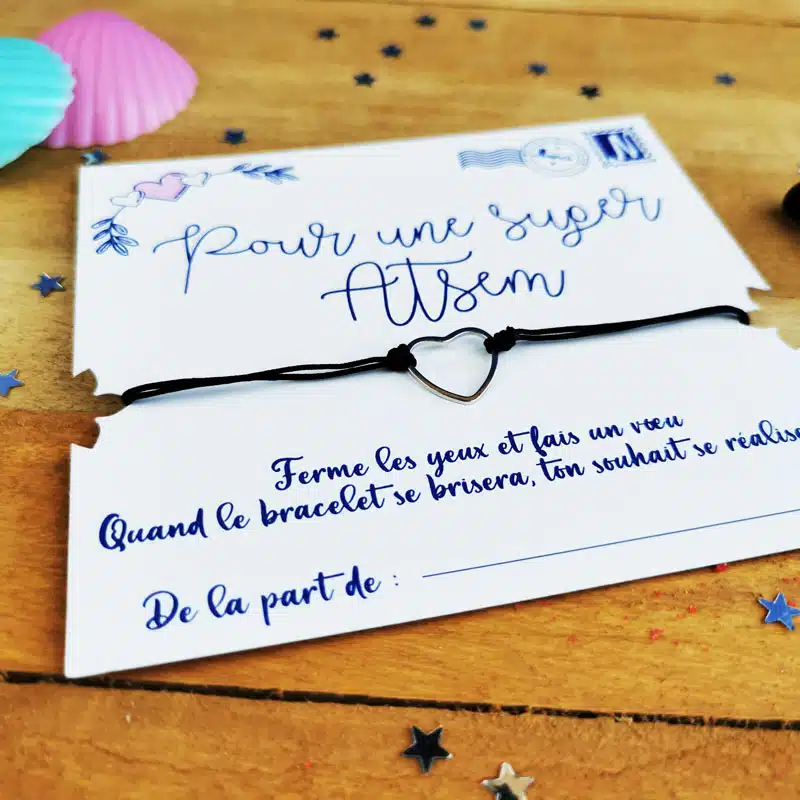 Pour une super
Atsem
Ferme les yeux et fais un vœu
Quand le bracelet se brisera, ton souhait se réalise
De la part de :